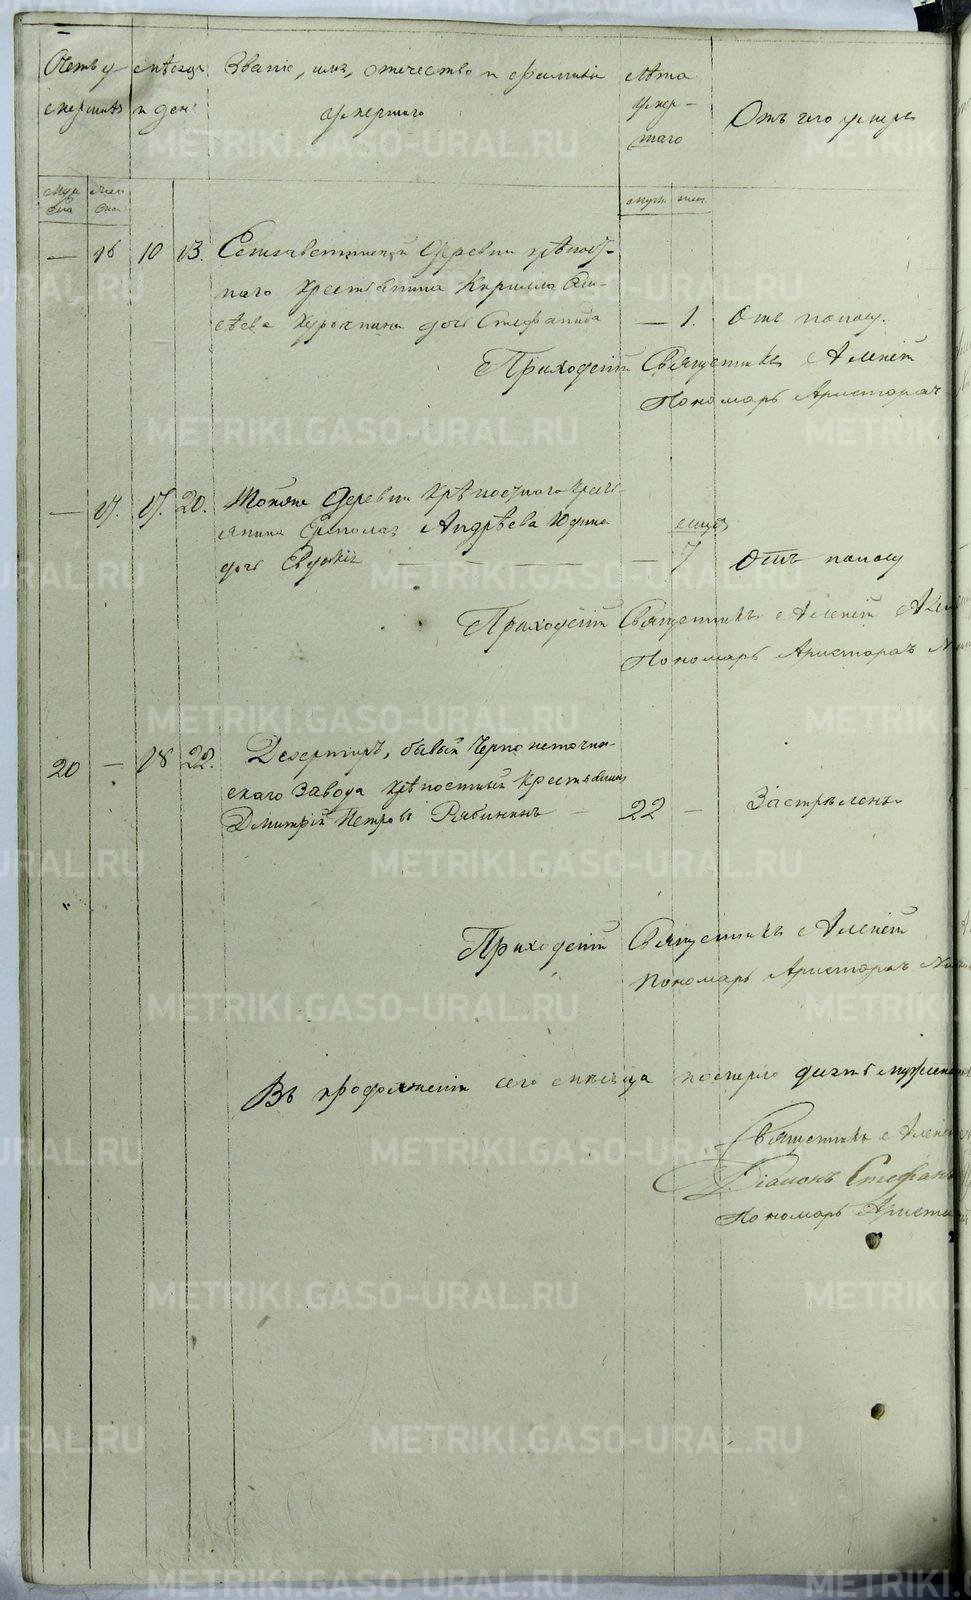 Счетъ умершихъ
Мѣсяцъ и день
Званіе, имя, отчество и фамилія
умершаго
Лѣта
умер-
шаго
Отъ чего умеръ
муж
ска
жен
ска
муж.
жен.
— 16 10 13. Елисаветинской Деревни крѣпост-
наго крестьянина Кирилла
сѣева дочь Стефанида — 1. Отъ поносу.
Приходскій Священникъ Алексій
Пономарь Аристархъ
— 17. 17. 20. Тойже Деревни Крѣпостнаго Крест-
янина Ермолая Андрѣева Юдина
дочь Евдокія — — — — — 7 мѣся Отъ поносу
Приходскій Священникъ Алексій
Пономарь Аристархъ
20 — 18 22. Дезертиръ, бывый Черноисточин-
скаго Завода крѣпостный Крестьянинъ
Дмитрій Петровъ Рябининъ — 22 — Застрѣленъ
Приходскій Священникъ Алексій
Пономарь Аристархъ
Въ продолженіи сего мѣсяца померло
Священникъ Алексій
Діаконъ Стефанъ
Пономарь Ариста
METRIKI.GASO-URAL.RU